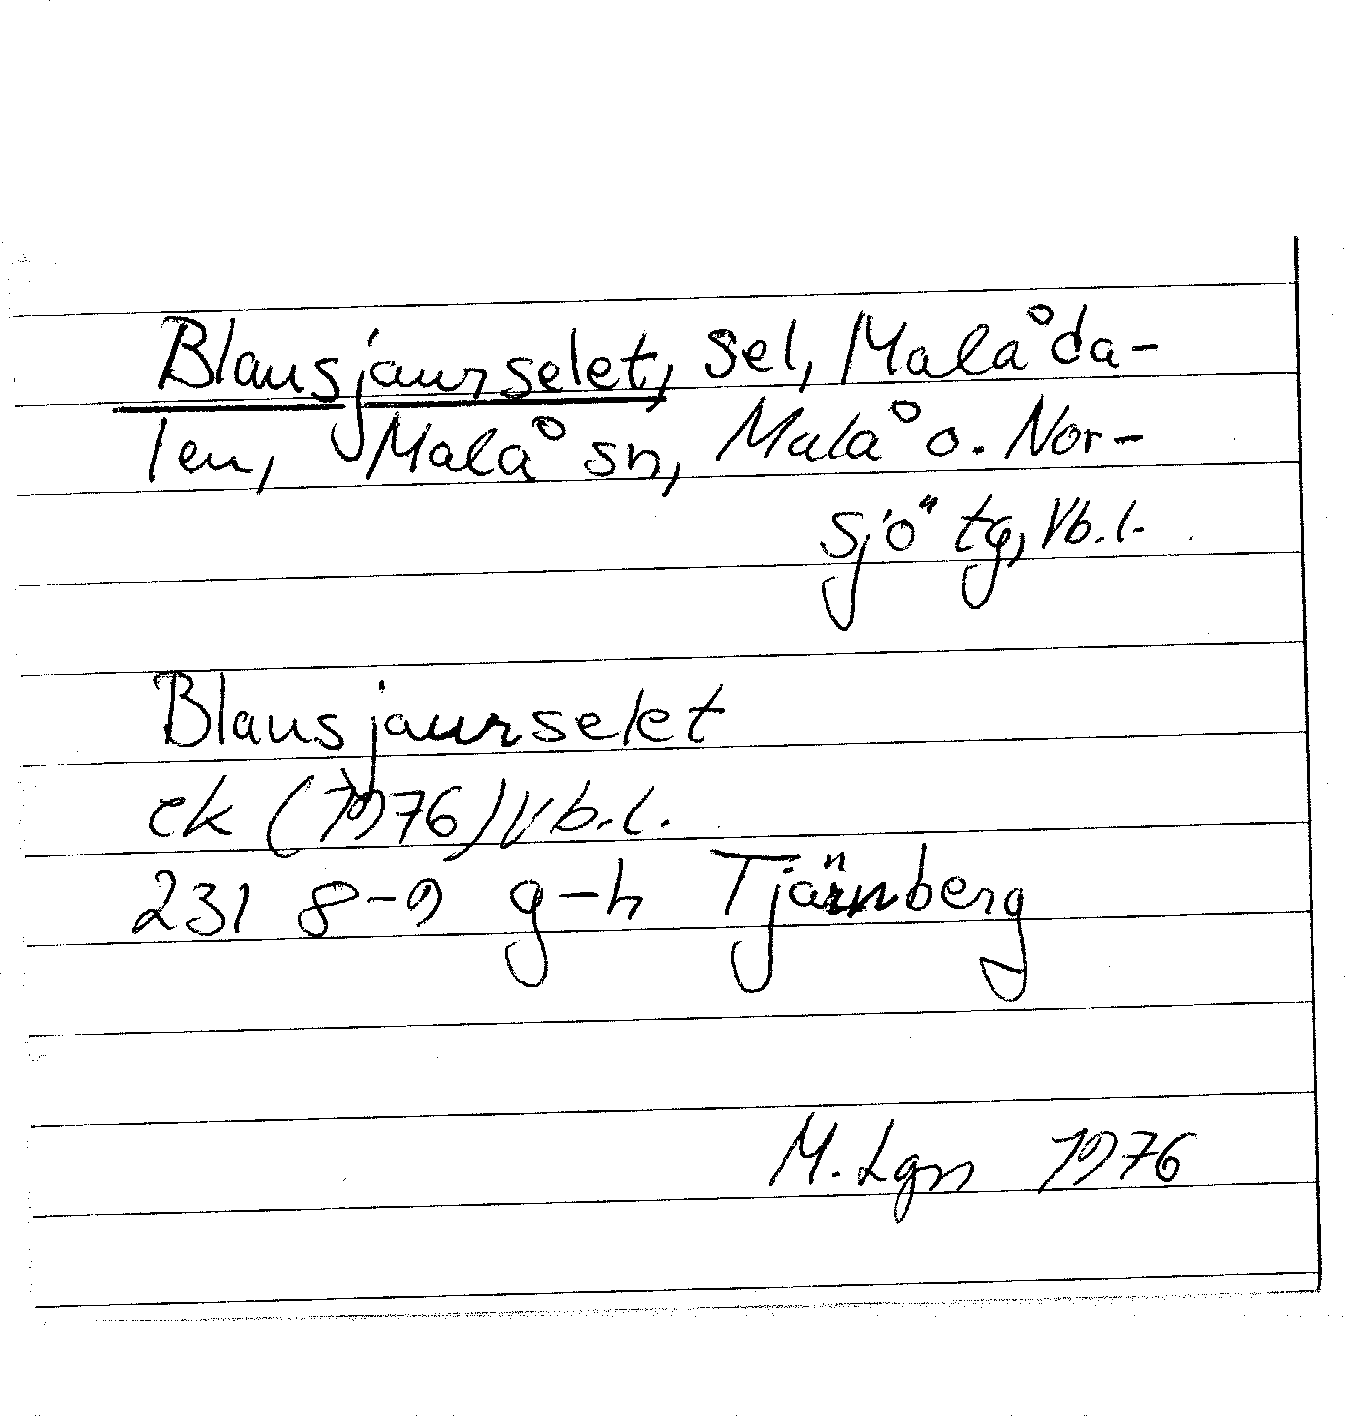 Blausjaurselet, sel, Malåda-
len, Malå sn, Malå o. Nor-
sjö tg, Vb.l.
Blausjaurselet
ek (1976) Vb.l.
231 8-9 g-h Tjärnberg
M. Lgn 1976